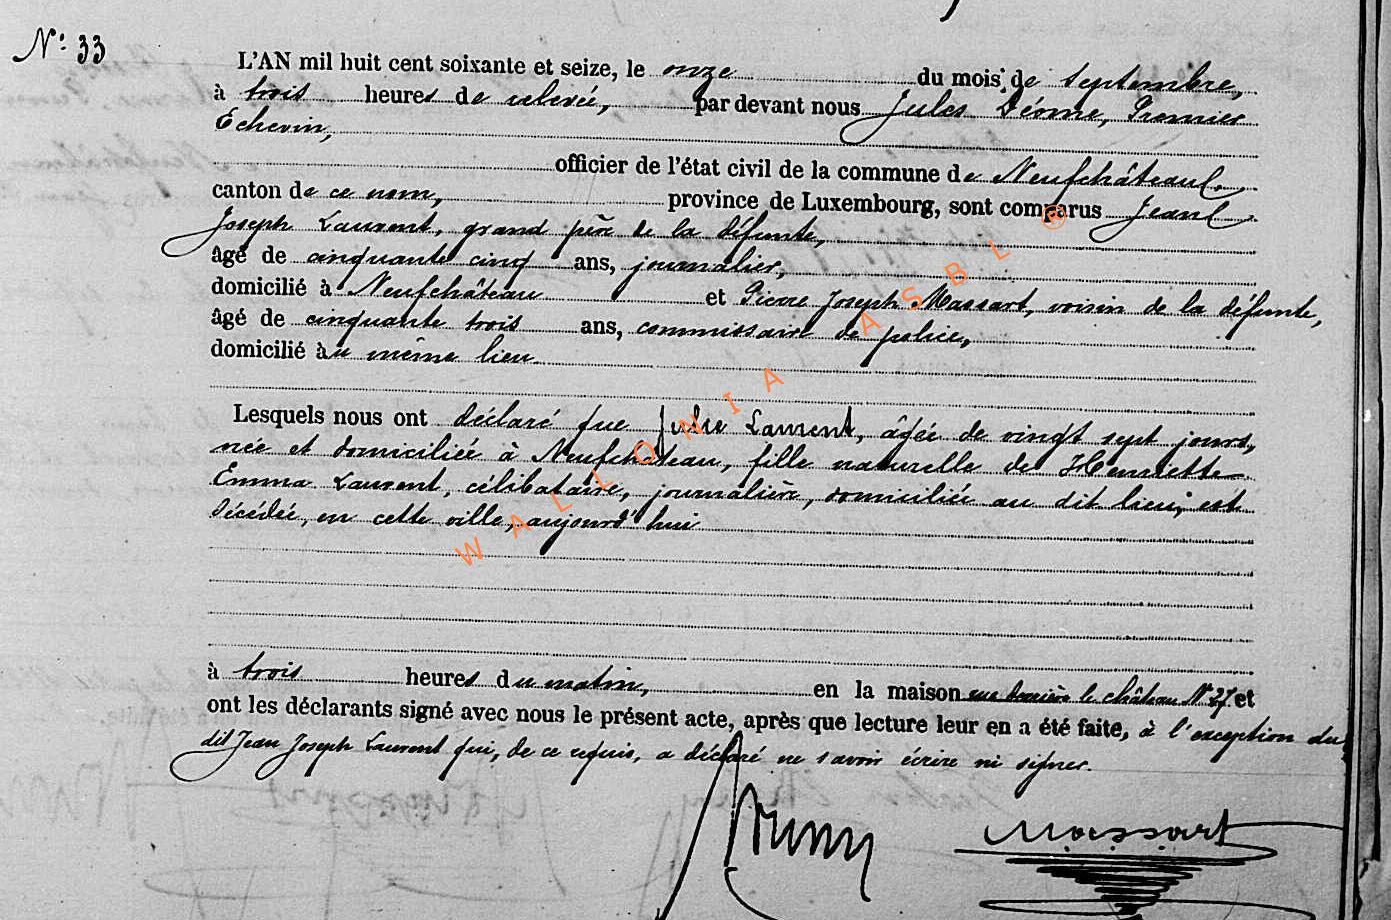 N° 33
L'AN mil huit cent soixante et seize, le onze du mois de septembre,
à trois heures de relevée, par devant nous Jules Déome, Premier
Echevin,
officier de l'état civil de la commune de Neufchâteau,
canton de ce nom, province de Luxembourg, sont comparus Jean
Joseph Laurent, grand père de la défunte,
âgé de cinquante cinq ans, journalier,
domicilié à Neufchâteau et Pierre Joseph Massart, voisin de la défunte,
âgé de cinquante trois ans, commissaire de police,
domicilié au même lieu
Lesquels nous ont déclaré que Julie Laurent, âgée de vingt sept jours,
née et domiciliée à Neufchâteau, fille naturelle de Henriette
Emma Laurent, célibataire, journalière, domiciliée au dit lieu, est
décédée, en cette ville, aujourd'hui
à trois heures du matin, en la maison rue derrière le château N° 27 et
ont les déclarants signé avec nous le présent acte, après que lecture leur en a été faite, à l'exception du
dit Jean Joseph Laurent qui, de ce requis, a déclaré ne savoir écrire ni signer.
Massart
WALLONIA ASBL ®